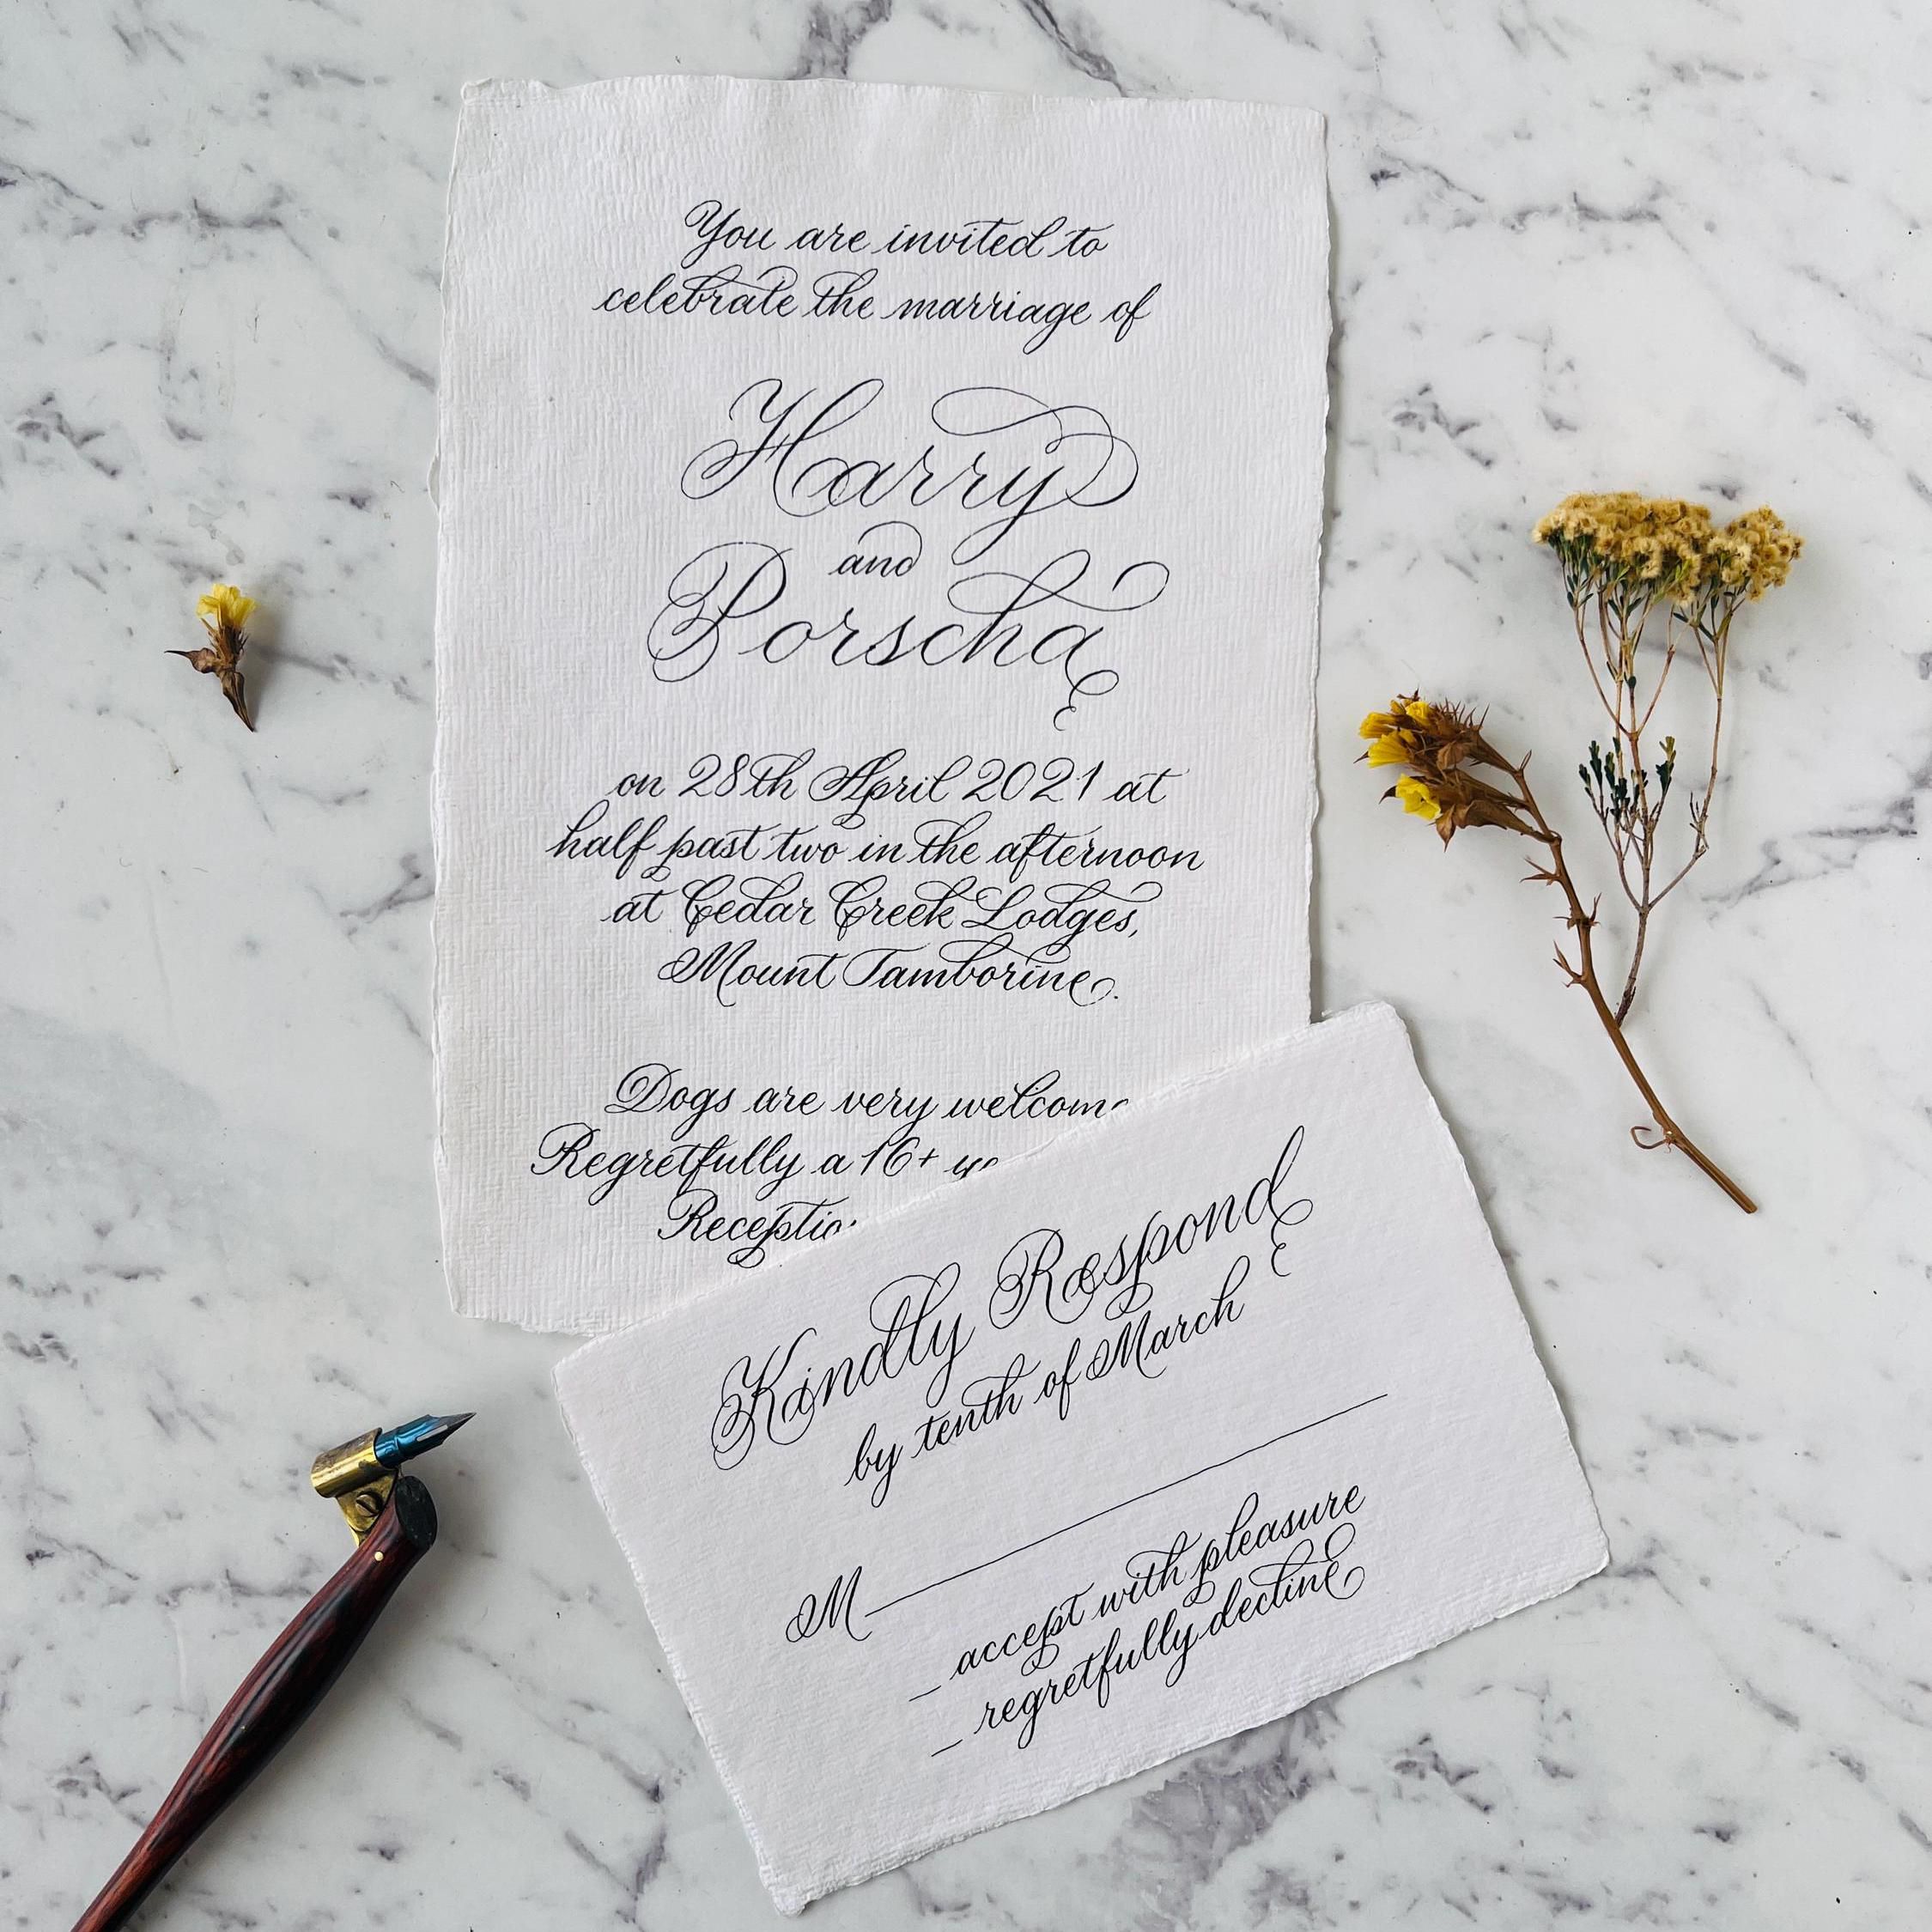 You are invited to
celebrate the marriage of
Harry
and
Porscha
on 28th April 2021 at
half past two in the afternoon
at Cedar Creek Lodges,
Mount Tamborine.
Dogs are very welcome
Regretfully a 16+
Kindly Respond
by tenth of March
M
accept with pleasure
regretfully decline